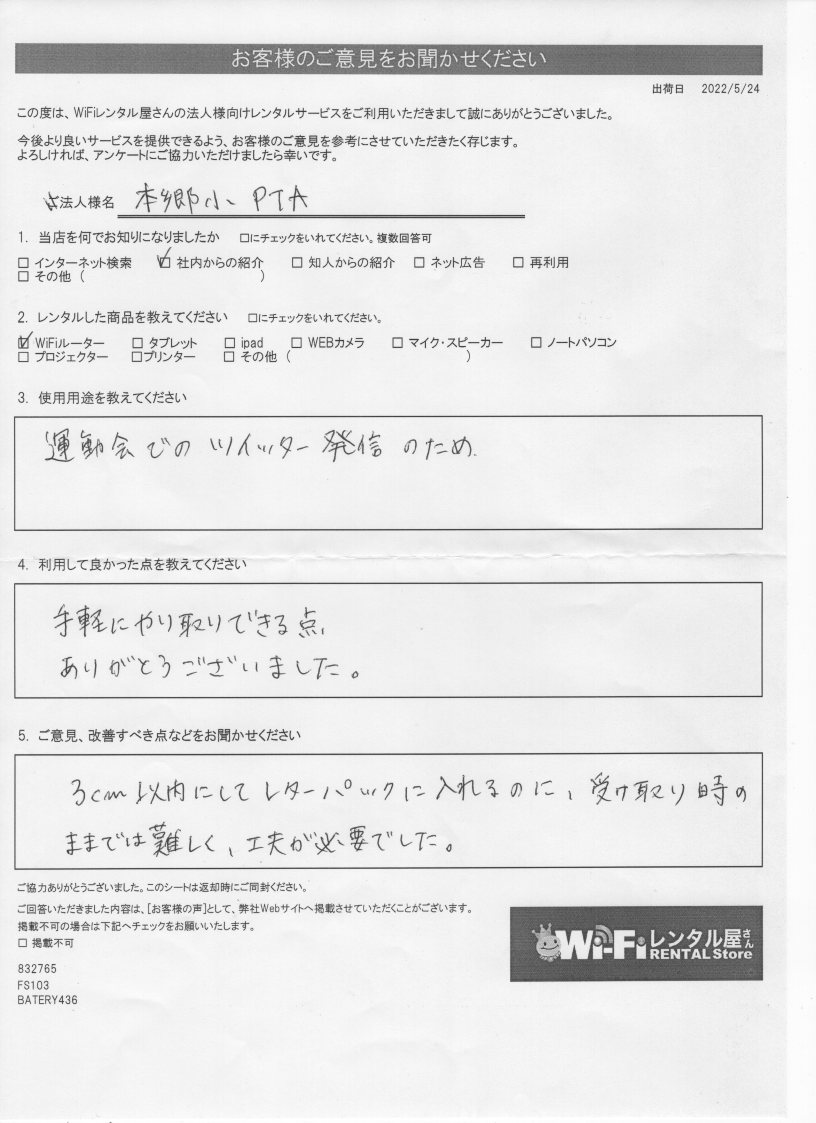 お客様のご意見をお聞かせください
出荷日 2022/5/24
この度は、WiFiレンタル屋さんの法人様向けレンタルサービスをご利用いただきまして誠にありがとうございました。
今後より良いサービスを提供できるよう、お客様のご意見を参考にさせていただきたく存じます。
よろしければ、アンケートにご協力いただけましたら幸いです。
法人様名 本郷小 PTA
1. 当店を何でお知りになりましたか □にチェックをいれてください。複数回答可
□ インターネット検索 ☑ 社内からの紹介 □ 知人からの紹介 □ ネット広告 □ 再利用
□ その他 ( )
2. レンタルした商品を教えてください □にチェックをいれてください。
☑ WiFiルーター □ タブレット □ ipad □ WEBカメラ □ マイク・スピーカー □ ノートパソコン
□ プロジェクター □プリンター □ その他 ( )
3. 使用用途を教えてください
運動会でのツイッター発信のため.
4. 利用して良かった点を教えてください
手軽にやり取りできる点、
ありがとうございました。
5. ご意見、改善すべき点などをお聞かせください
3cm以内にしてレターパックに入れるのに、受け取り時の
ままでは難しく、工夫が必要でした。
ご協力ありがとうございました。このシートは返却時にご同封ください。
ご回答いただきました内容は、[お客様の声]として、弊社Webサイトへ掲載させていただくことがございます。
掲載不可の場合は下記へチェックをお願いいたします。
□ 掲載不可
Wi-Fiレンタル屋さん
RENTAL Store
832765
FS103
BATERY436